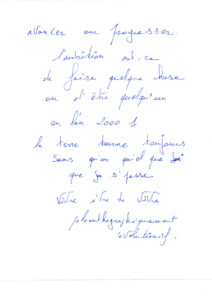 avancer ou progresser.
l'ambition est-ce
de faire quelque chose
ou d'être quelqu'un
en l'an 2000 !
la terre tourne toujours
sans qu'on quel que soi
que se passe
vivre ivre de vivre
évolutionnif.